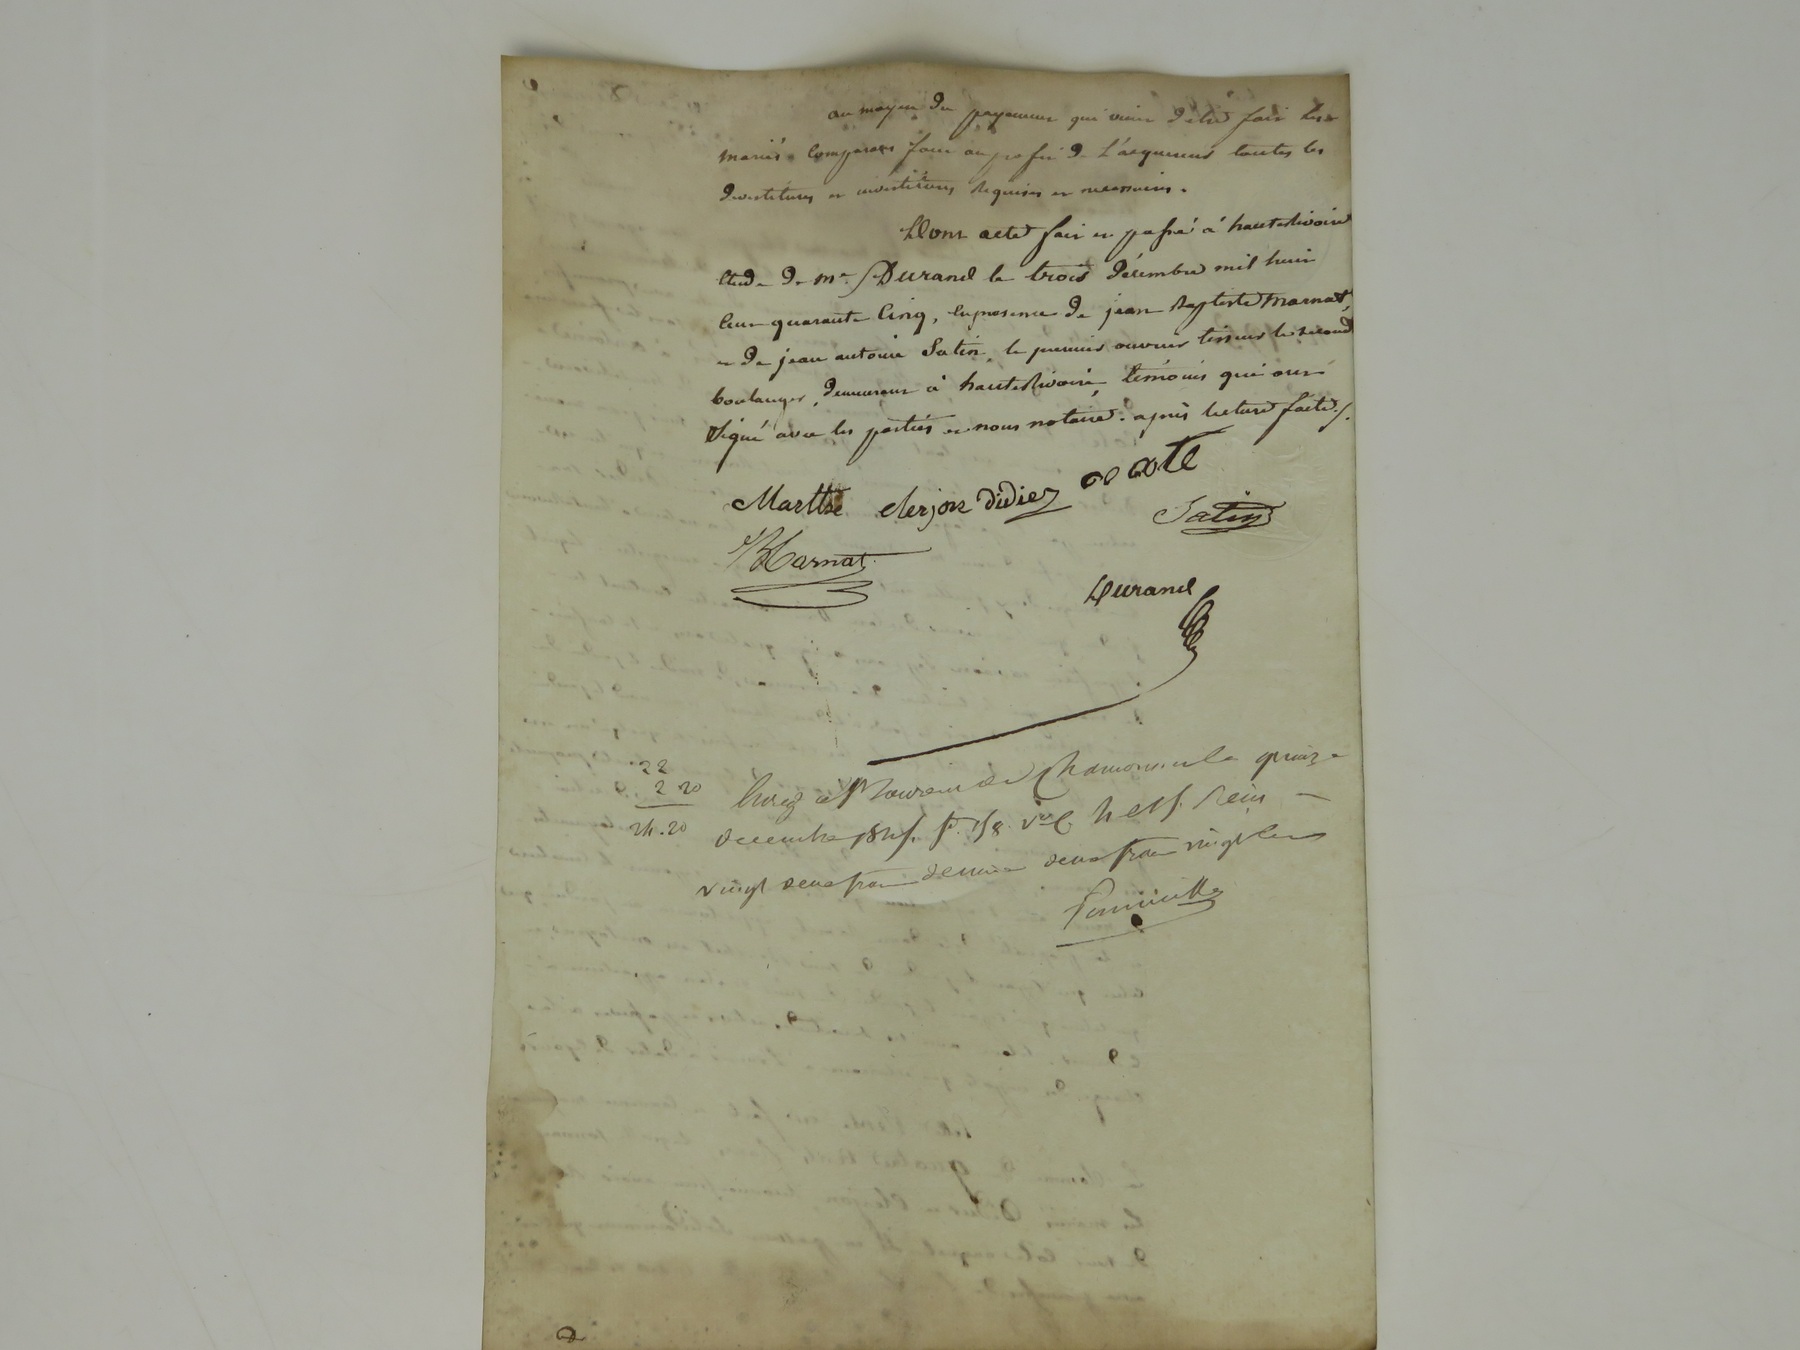 au moyen du payement qui vient d'etre fait les
mariés comparans font au profit de l'acquereur toutes les
devestitures et investitures requises et necessaires.
Dont acte fait et passé à hauterivoire
étude de me Durand le trois décembre mil huit
cent quarante cinq, en presence de jean Baptiste Marnat,
et de jean antoine Satin, le premier ouvrier tisseur le second
boulanger, demeurant à hauterivoire, témoins qui ont
signé avec les parties et nous notaire. après lecture faite./.
clerjon didier
Satin
Marnat
Durand
22
2 20
24.20
decembre 1845. f. 158. v
vingt deux francs decime deux francs vingt